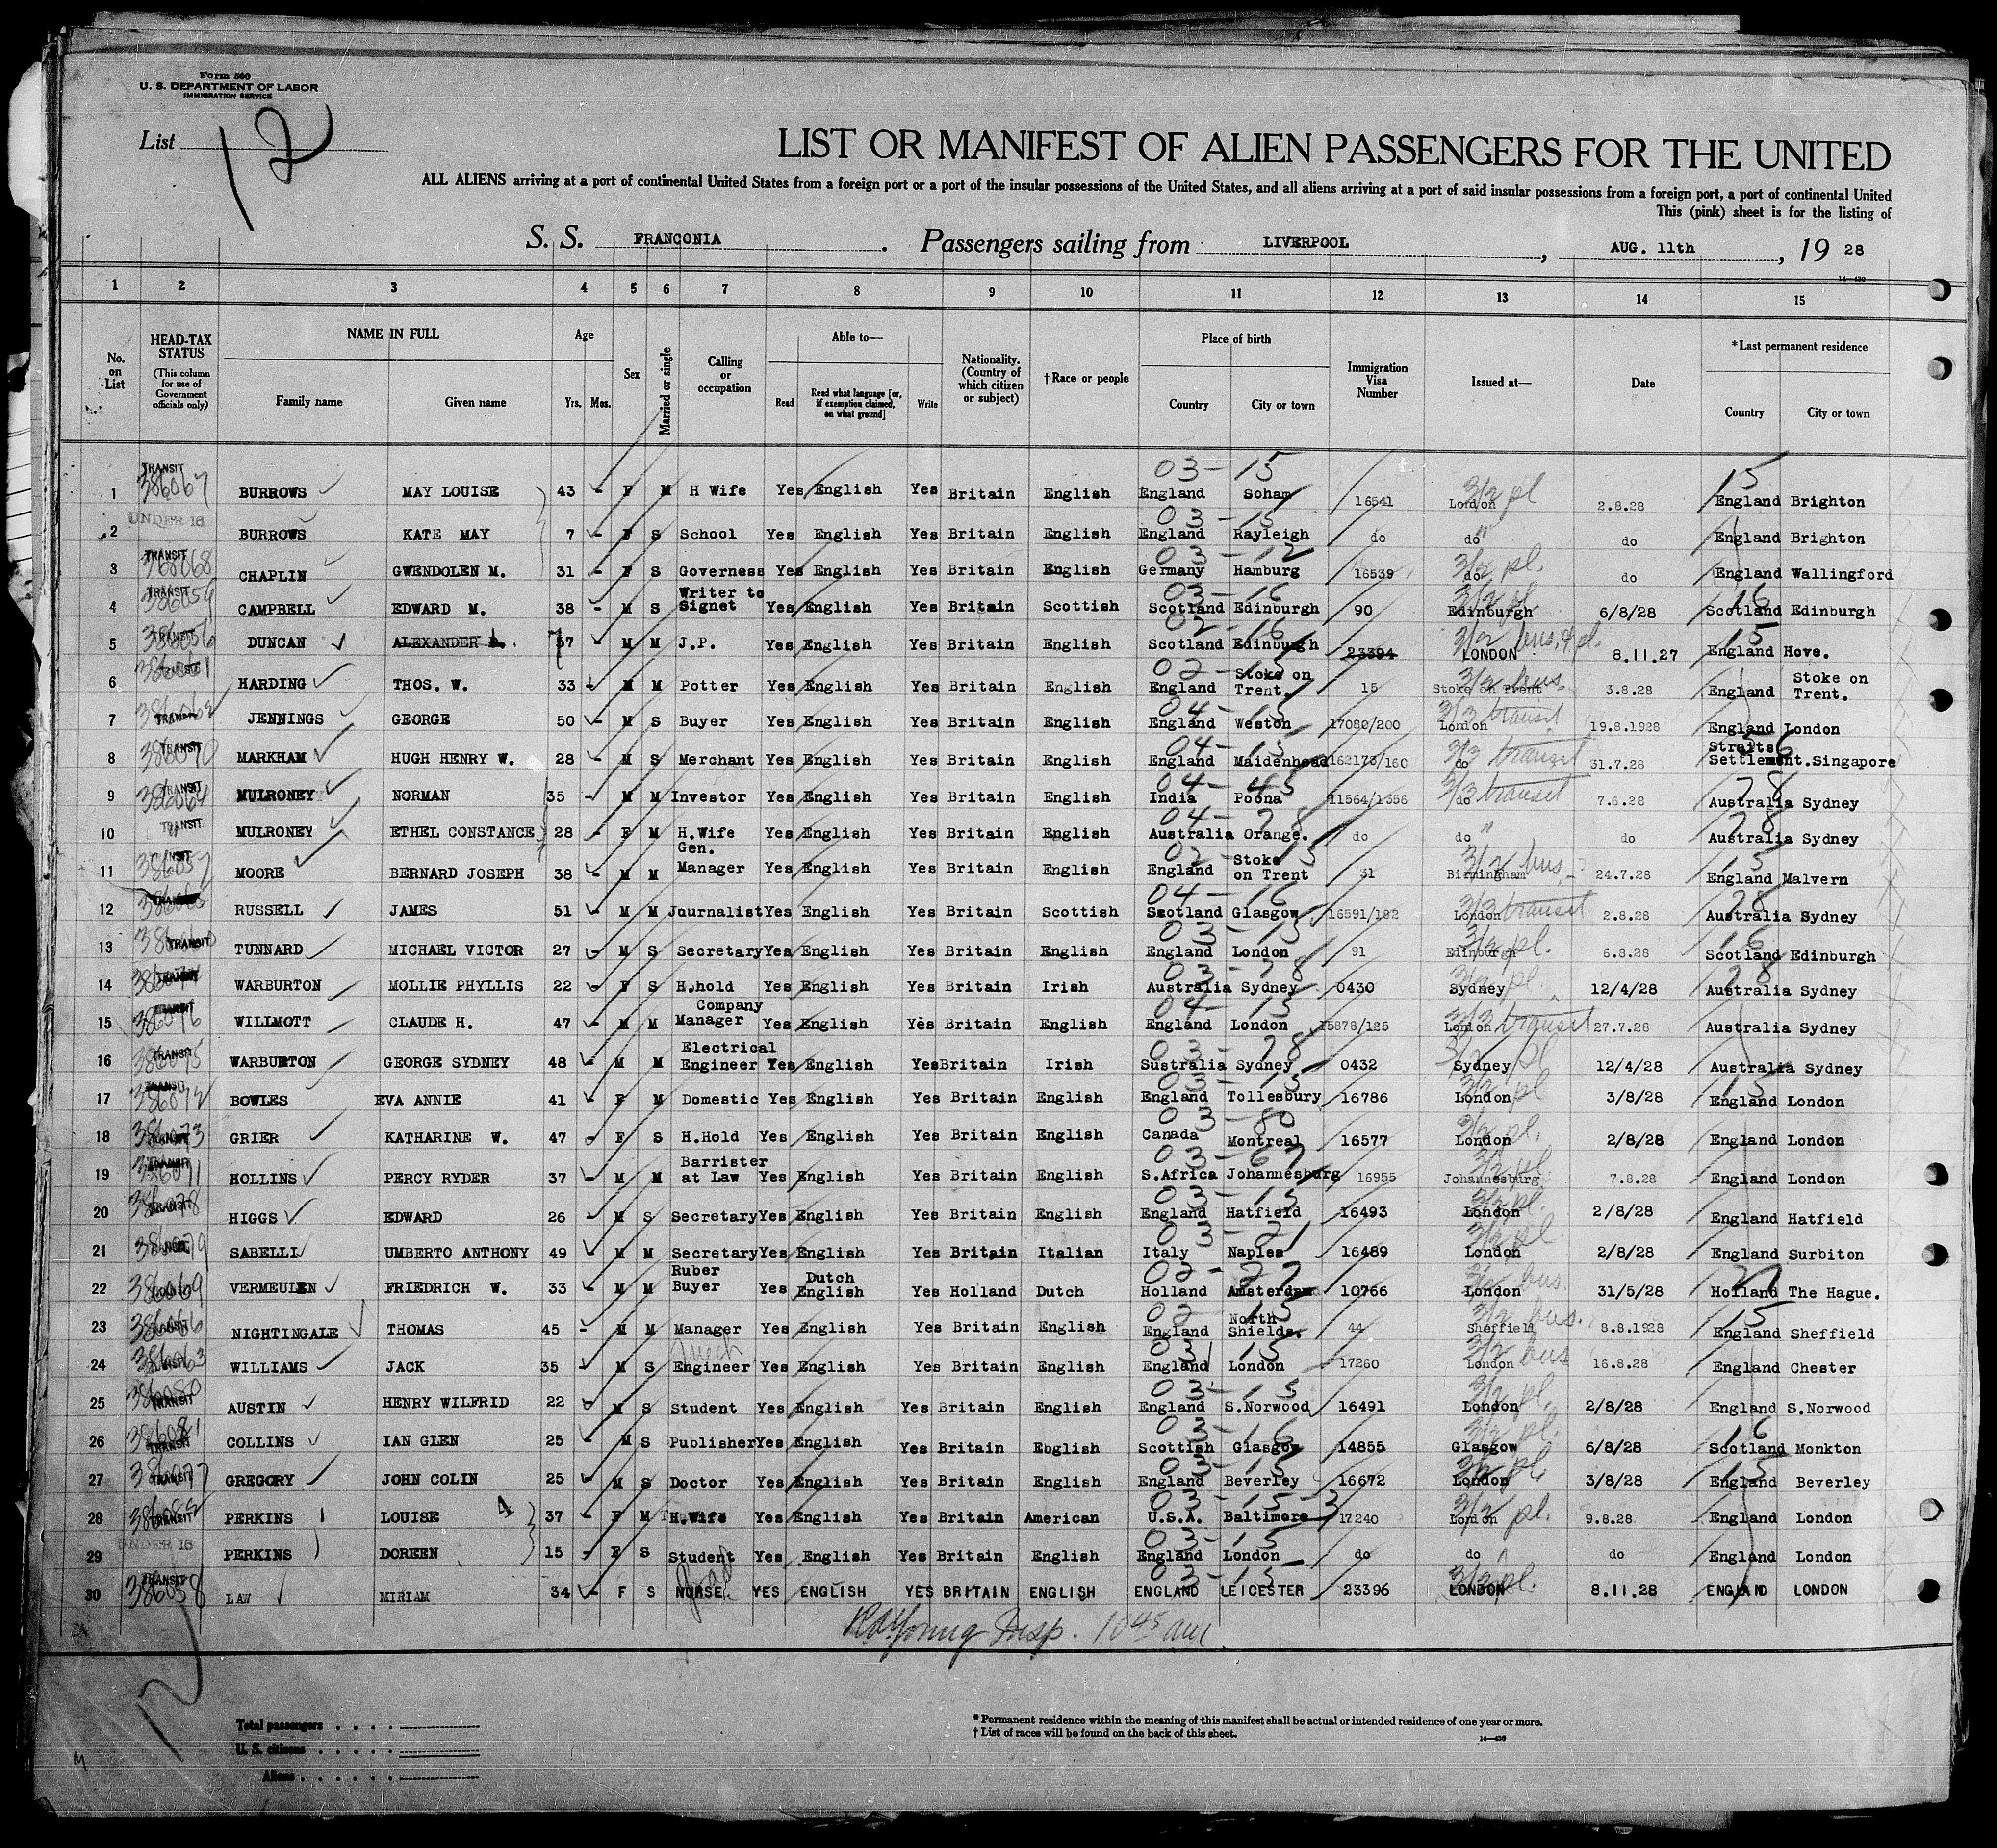 Form 500
U. S. DEPARTMENT OF LABOR
IMMIGRATION SERVICE
List 12
LIST OR MANIFEST OF ALIEN PASSENGERS FOR THE UNITED
ALL ALIENS arriving at a port of continental United States from a foreign port or a port of the insular possessions of the United States, and all aliens arriving at a port of said insular possessions from a foreign port, a port of continental United
This (pink) sheet is for the listing of
S. S. FRANCONIA. Passengers sailing from LIVERPOOL, AUG. 11th, 19 28
14—430
1 2 3 4 5 6 7 8 9 10 11 12 13 14 15
No. on List
HEAD-TAX STATUS (This column for use of Government officials only)
NAME IN FULL Family name Given name
Age Yrs. Mos.
Sex
Married or single
Calling or occupation
Able to— Read Read what language [or, if exemption claimed, on what ground] Write
Nationality. (Country of which citizen or subject)
†Race or people
Place of birth Country City or town
Immigration Visa Number
Issued at—
Date
*Last permanent residence Country City or town
03-15 15
1 TRANSIT 386067 BURROWS MAY LOUISE 43 - F M H Wife Yes English Yes Britain English England Soham 16541 London 3/2 pl 2.8.28 England Brighton
UNDER 16 03-15
2 BURROWS KATE MAY 7 F S School Yes English Yes Britain English England Rayleigh do do " do England Brighton
03-12
3 TRANSIT 386068 CHAPLIN GWENDOLEN M. 31 - F S Governess Yes English Yes Britain English Germany Hamburg 16539 do 3/2 pl. do England Wallingford
03-16 16
4 TRANSIT 386059 CAMPBELL EDWARD M. 38 - M S Writer to Signet Yes English Yes Britain Scottish Scotland Edinburgh 90 Edinburgh 3/2 pl 6/8/28 Scotland Edinburgh
02-16 15
5 TRANSIT 386056 DUNCAN ALEXANDER 57 M M J.P. Yes English Yes Britain English Scotland Edinburgh 23394 LONDON 3/2 bus. & pl. 8.11.27 England Hove.
02-15
6 TRANSIT 386061 HARDING THOS. W. 33 M M Potter Yes English Yes Britain English England Stoke on Trent. 15 Stoke on Trent 3/2 bus. 3.8.28 England Stoke on Trent.
04-15
7 TRANSIT 386062 JENNINGS GEORGE 50 - M S Buyer Yes English Yes Britain English England Weston 17080/200 London 3/3 transit 19.8.1928 England London
04-15 56
8 TRANSIT 386070 MARKHAM HUGH HENRY W. 28 M S Merchant Yes English Yes Britain English England Maidenhead 162173/160 do 3/3 transit 31.7.28 Straits Settlement. Singapore
04-45 78
9 TRANSIT 386064 MULRONEY NORMAN 35 - M M Investor Yes English Yes Britain English India Poona 11564/1356 do 3/3 transit 7.6.28 Australia Sydney
04-78 78
10 TRANSIT " MULRONEY ETHEL CONSTANCE 28 - F M H.Wife Yes English Yes Britain English Australia Orange. do do " do Australia Sydney
02-15 15
11 386057 MOORE BERNARD JOSEPH 38 - M M Gen. Manager Yes English Yes Britain English England Stoke on Trent 31 Birmingham 3/2 bus. 24.7.28 England Malvern
04-16 78
12 RUSSELL JAMES 51 - M M Journalist Yes English Yes Britain Scottish Smotland Glasgow 16591/182 London 3/3 transit 2.8.28 Australia Sydney
03-15 16
13 TRANSIT TUNNARD MICHAEL VICTOR 27 - M S Secretary Yes English Yes Britain English England London 91 Edinburgh 3/2 pl. 6.8.28 Scotland Edinburgh
03-78 78
14 386074 WARBURTON MOLLIE PHYLLIS 22 - F S H.hold Yes English Yes Britain Irish Australia Sydney 0430 Sydney 3/2 pl 12/4/28 Australia Sydney
04-15
15 386076 WILLMOTT CLAUDE H. 47 - M M Company Manager Yes English Yes Britain English England London 15878/125 London 3/3 transit 27.7.28 Australia Sydney
03-78
16 TRANSIT 386075 WARBURTON GEORGE SYDNEY 48 - M M Electrical Engineer Yes English Yes Britain Irish Sustralia Sydney 0432 Sydney 3/2 pl 12/4/28 Australia Sydney
03-15 15
17 TRANSIT 386072 BOWLES EVA ANNIE 41 - F M Domestic Yes English Yes Britain English England Tollesbury 16786 London 3/2 pl 3/8/28 England London
03-80
18 TRANSIT 386073 GRIER KATHARINE W. 47 - F S H.Hold Yes English Yes Britain English Canada Montreal 16577 London 3/2 pl. 2/8/28 England London
03-67
19 TRANSIT 386071 HOLLINS PERCY RYDER 37 M M Barrister at Law Yes English Yes Britain English S.Africa Johannesburg 16955 Johannesburg 3/2 pl. 7.8.28 England London
03-15
20 TRANSIT 386078 HIGGS EDWARD 26 - M S Secretary Yes English Yes Britain English England Hatfield 16493 London 3/2 pl. 2/8/28 England Hatfield
03-21
21 386079 SABELLI UMBERTO ANTHONY 49 - M M Secretary Yes English Yes Britain Italian Italy Naples 16489 London 3/2 pl 2/8/28 England Surbiton
02-27 27
22 386069 VERMEULEN FRIEDRICH W. 33 M M Ruber Buyer Yes Dutch English Yes Holland Dutch Holland Amsterdam 10766 London 3/2 bus. 31/5/28 Holland The Hague.
02-15 15
23 386066 NIGHTINGALE THOMAS 45 - M M Manager Yes English Yes Britain English England North Shields. 44 Sheffield 3/2 bus. 8.8.1928 England Sheffield
03-15
24 386063 WILLIAMS JACK 35 M S Mech Engineer Yes English Yes Britain English England London 17260 London 3/2 bus 16.8.28 England Chester
03-15
25 TRANSIT 386080 AUSTIN HENRY WILFRID 22 - M S Student Yes English Yes Britain English England S.Norwood 16491 London 3/2 pl. 2/8/28 England S.Norwood
03-16 16
26 TRANSIT 386081 COLLINS IAN GLEN 25 - M S Publisher Yes English Yes Britain Ebglish Scottish Glasgow 14855 Glasgow 3/2 pl. 6/8/28 Scotland Monkton
03-15 15
27 TRANSIT 386077 GREGORY JOHN COLIN 25 - M S Doctor Yes English Yes Britain English England Beverley 16672 London 3/2 pl. 3/8/28 England Beverley
03-15-3
28 TRANSIT 386082 PERKINS LOUISE 4 37 - F M H.Wife Yes English Yes Britain American U.S.A. Baltimore 17240 London 3/2 pl. 9.8.28 England London
UNDER 16 03-15
29 PERKINS DOREEN 15 - F S Student Yes English Yes Britain English England London do do do England London
03-15
30 TRANSIT 386058 LAW MIRIAM 34 - F S NURSE YES ENGLISH YES BRITAIN ENGLISH ENGLAND LEICESTER 23396 LONDON 3/2 pl. 8.11.28 ENGLAND LONDON
Young Insp. 10 45 am
12
Total passengers
U. S. citizens
Aliens
M
* Permanent residence within the meaning of this manifest shall be actual or intended residence of one year or more.
† List of races will be found on the back of this sheet.
14—430